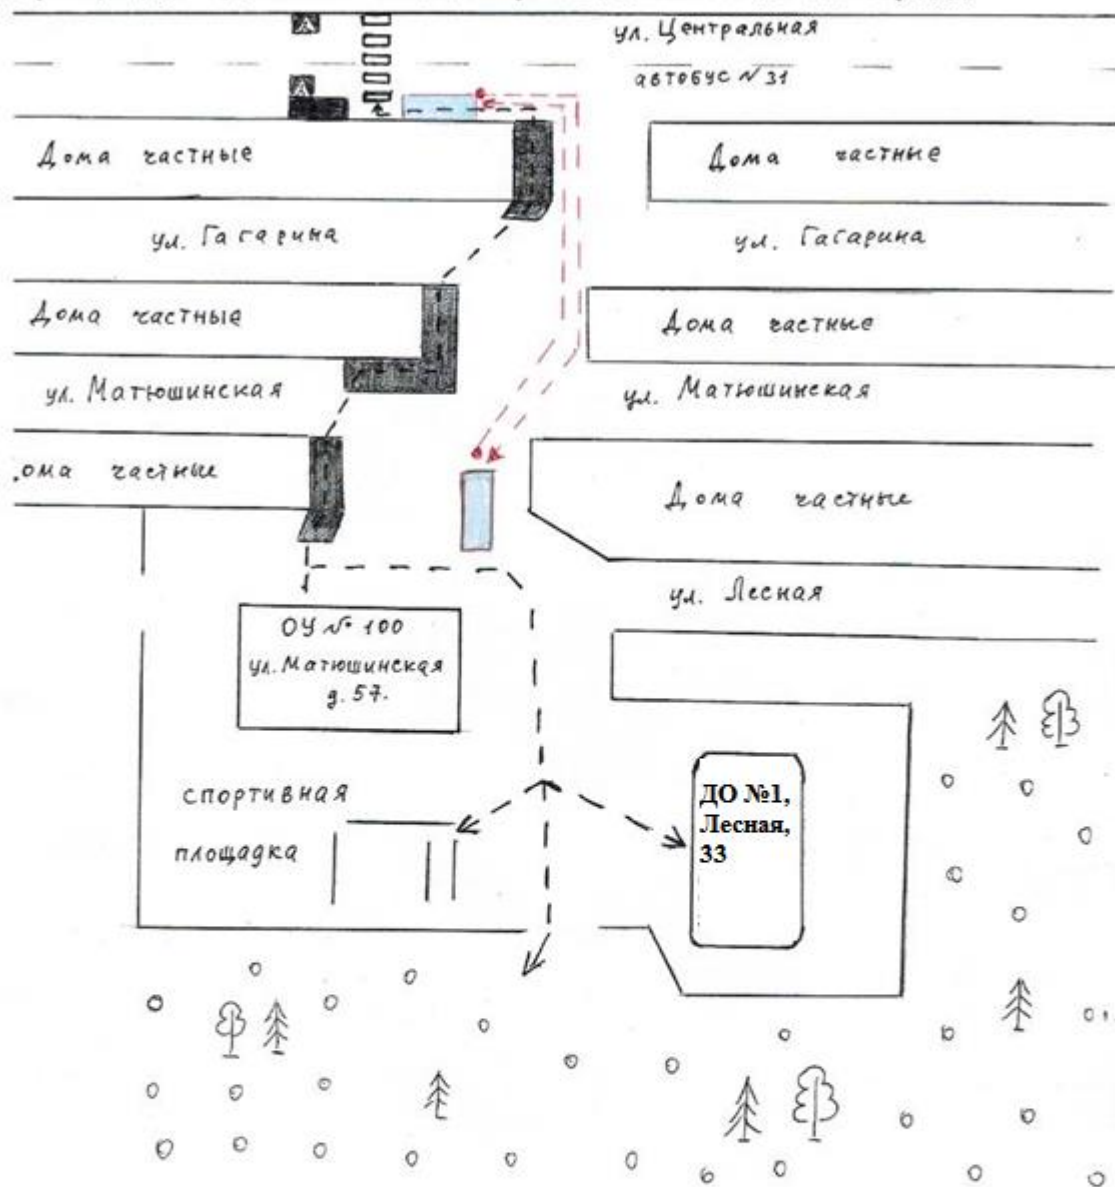 А
ул. Центральная
А
автобус № 31
Дома частные
Дома частные
ул. Гагарина
ул. Гагарина
Дома частные
Дома частные
ул. Матюшинская
ул. Матюшинская
ома частные
Дома частные
ул. Лесная
ОУ № 100
ул. Матюшинская
д. 57.
спортивная
площадка
ДО №1,
Лесная,
33